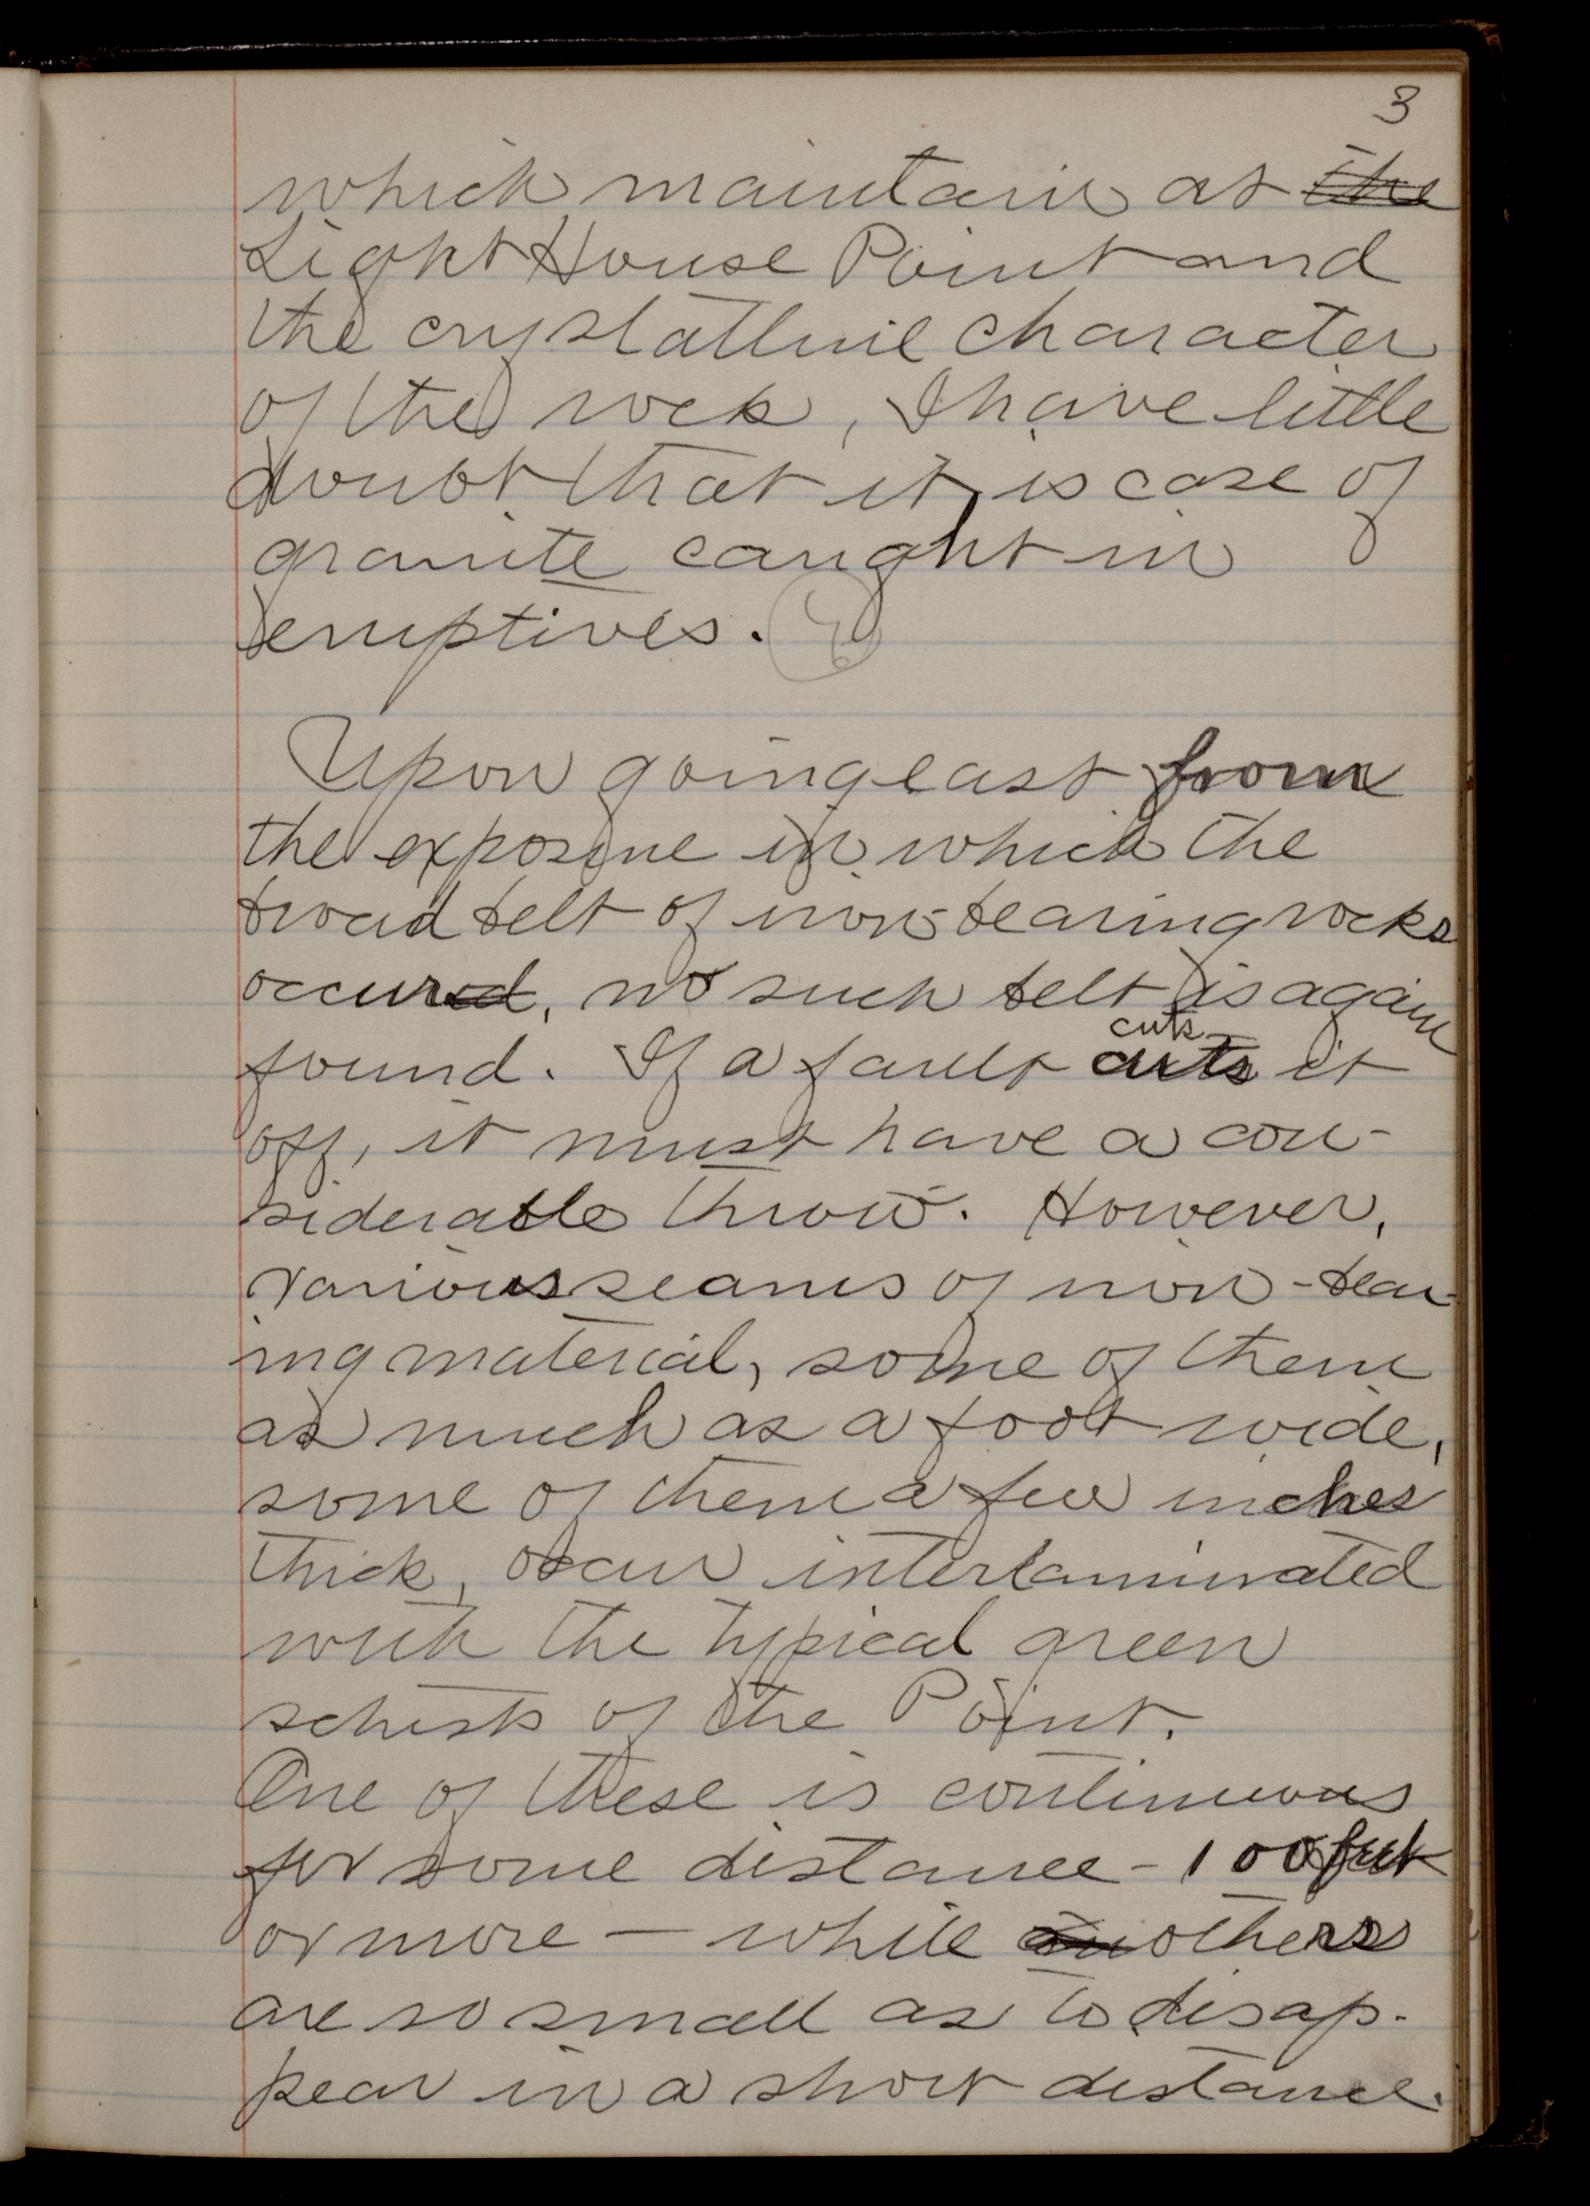 3
which maintain at the
Light House Point and
the crystalline character
of the rock, I have little
doubt that it is case of
granite caught in
eruptives.
Upon going east from
the exposure in which the
broad belt of iron-bearing rocks
occured, no such belt is again
found. If a fault cuts cuts it
off, it must have a con-
siderable throw. However,
various seams of iron-bear-
ing material, some of them
as much as a foot wide,
some of them a few inches
thick, occur interlaminated
with the typical green
schists of the Point.
One of these is continuous
for some distance - 100 feet
or more — while others
are so small as to disap-
pear in a short distance.